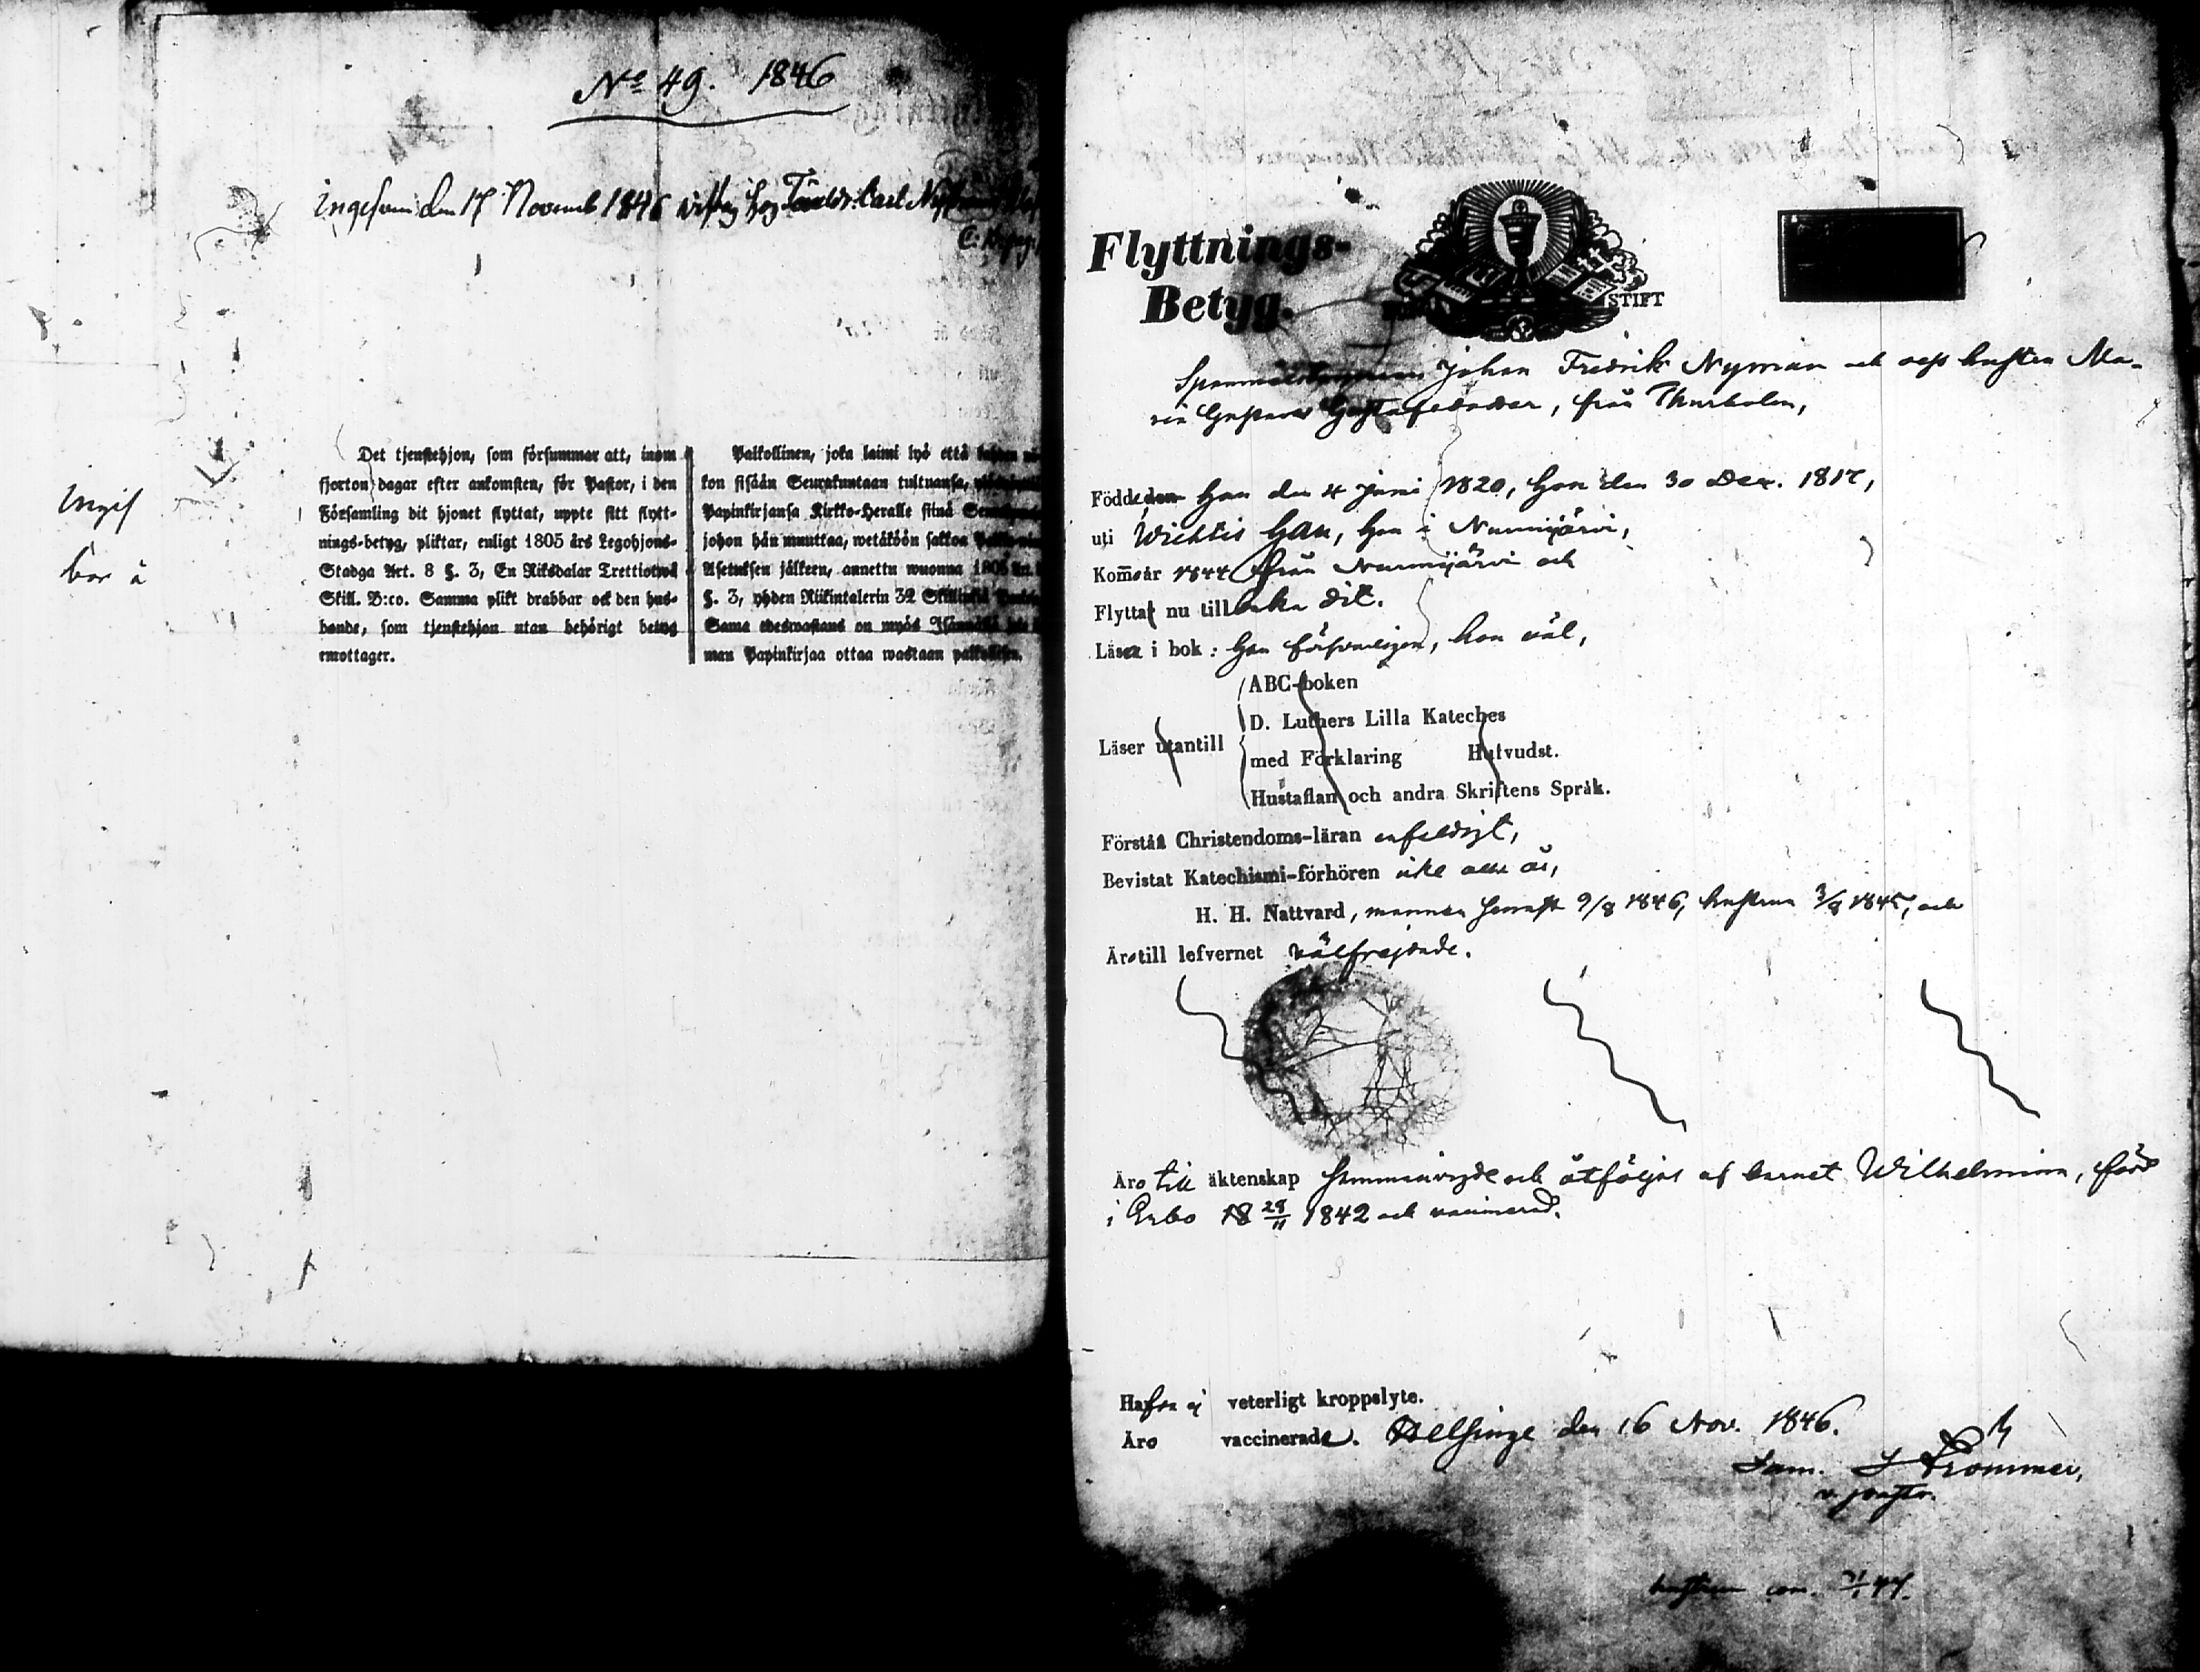 No 49. 1846
den 17 Novemb 1846 Carl
Det tjenstehjon, som försummar att, inom
fjorton dagar efter ankomsten, för Pastor, i den
Församling dit hjonet flyttat, uppte sitt flytt-
nings-betyg, pliktar, enligt 1805 års Legohjons-
Stadga Art. 8 §. 3, En Riksdalar Trettiotwå
Skill. B:co. Samma plikt drabbar ock den hus-
bonde, som tjenstehjon utan behörigt betyg
emottager.
Palkollinen, joka laimi lyö että
kon sisään Seurakuntaan tultuansa,
Papinkirjansa Kirkko-Heralle siinä
johon hän muuttaa, wetäköön sakkoa
Asetuksen jälkeen, annettu wuonna 1805
§. 3, yhden Riikintalerin 32
Sama edeswastaus on myös
man Papinkirjaa ottaa wastaan
Flyttnings-
Betyg.
STIFT
Johan Fredrik Nyman och hustru Ma-
ria, från Thurholm,
Födde den han den 4 Juni 1820, hon den 30 Dec. 1817,
uti Wichtis han, hon i Nurmijärvi,
Kom̅o år 1844 från Nurmijärvi och
Flyttat nu tillbaka dit.
Läser i bok: han försvarligen, hon väl,
ABC-boken
D. Luthers Lilla Kateches
Läser utantill
med Förklaring Hufvudst.
Hustaflan och andra Skriftens Språk.
Förstå Christendoms-läran enfaldigt,
Bevistat Katechismi-förhören icke alla år,
H. H. Nattvard, mannen senast 9/8 1846, hustrun 3/8 1845, och
Äro till lefvernet välfrejdade.
Äro till äktenskap sammanvigde och åtföljas af barnet Wilhelmina, född
i Esbo 28/11 1842 och vaccinerad.
Hafva ej veterligt kroppslyte.
Äro vaccinerade. Helsinge den 16 Nov. 1846.
Sam. Strömmer,
v. pastor.